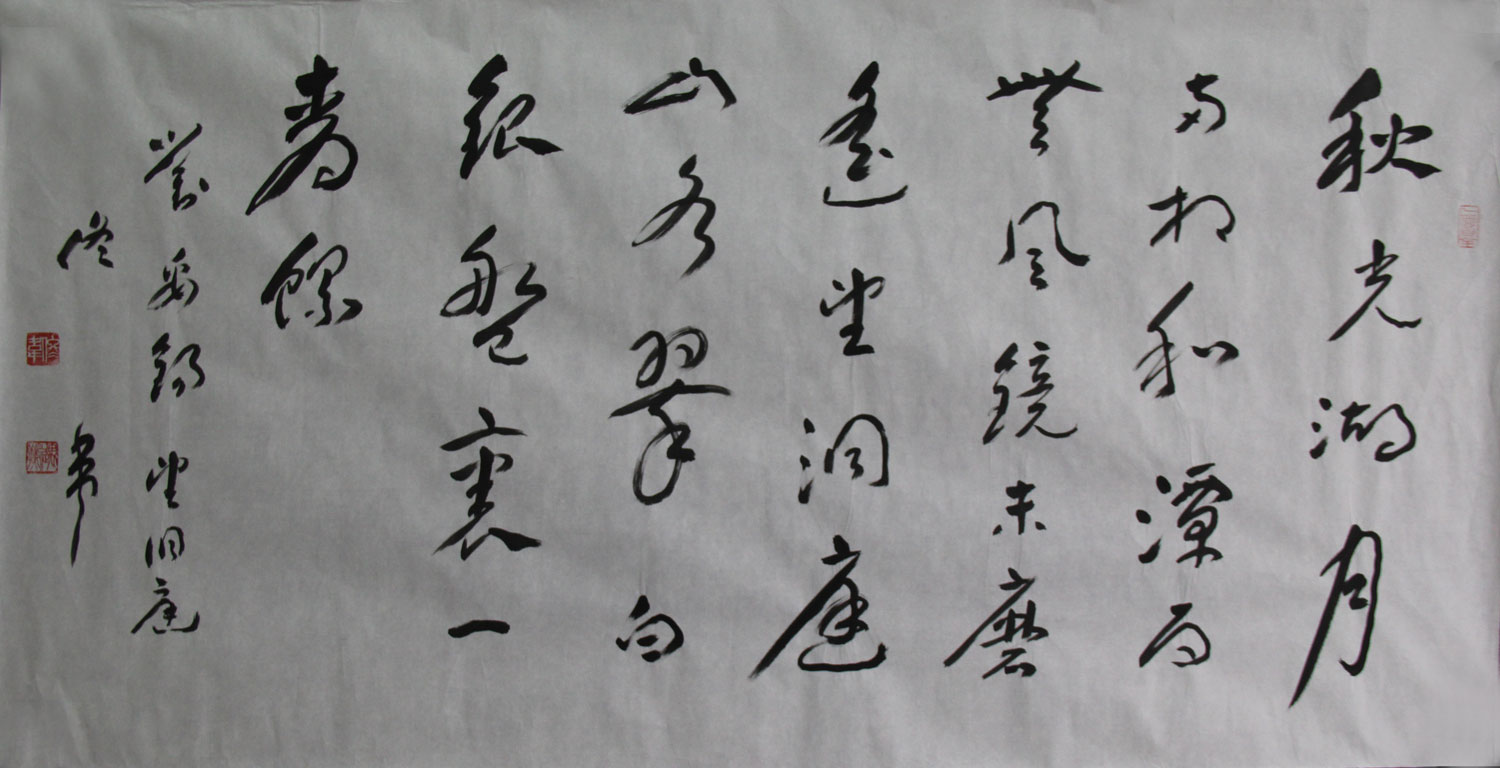 秋光湖月
兩相和潭面
無風鏡未磨
遙望洞庭
山翠白
銀盤裏一
青螺
劉禹錫望洞庭
書